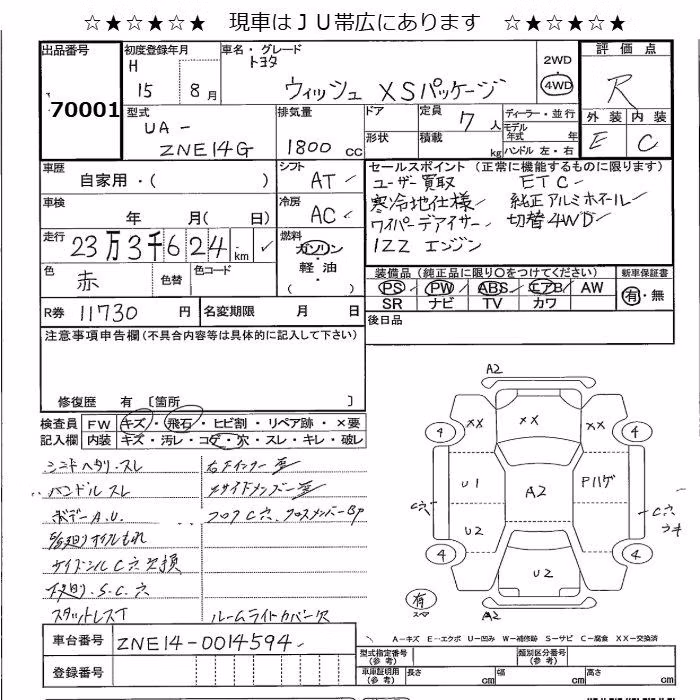 ☆★☆★☆★ 現車はＪＵ帯広にあります ☆★☆★☆★
出品番号
70001
初度登録年月
H 15 8月
車名・グレード
トヨタ
ウィッシュ XSパッケージ
2WD
4WD
評価点
R
外装 内装
E C
型式
UA-
ZNE14G
排気量
1800 cc
ドア
形状
定員 7人
積載 kg
ディーラー・並行
モデル年式 年
ハンドル 左・右
車歴
自家用・( )
シフト
AT
車検
年 月( 日)
冷房
AC
走行
23万3千624 km
燃料
ガソリン
軽・油
( )
色
赤
色替
色コード
R券 11730 円
名変期限 月 日
セールスポイント (正常に機能するものに限ります)
ユーザー買取 ETC
寒冷地仕様 純正アルミホイール
ワイパーデアイサー 切替4WD
1ZZ エンジン
装備品 (純正品に限り○をつけてください)
新車保証書
PS PW ABS エアB AW
SR ナビ TV カワ
有・無
後日品
注意事項申告欄(不具合内容等は具体的に記入して下さい)
修復歴 有 〔箇所 〕
検査員
記入欄
FW キズ・飛石・ヒビ割・リペア跡・×要
内装 キズ・汚レ・コゲ・穴・スレ・キレ・破レ
ハンドルスレ
ボデーA.U.
フロアC穴 クロスメンバーBP
下廻り.S.C.穴
スタットレスT
ルームライトカバー欠
A2
XX
XX
XX
4
4
U1
A2
Pハゲ
C穴
C穴
U2
4
4
U2
有
A2
車台番号 ZNE14-0014594
登録番号
A―キズ E―エクボ U―凹み W―補修跡 S―サビ C―腐食 XX―交換済
型式指定番号
(参考)
類別区分番号
(参考)
車庫証明用
(参考)
長さ cm
幅 cm
高さ cm